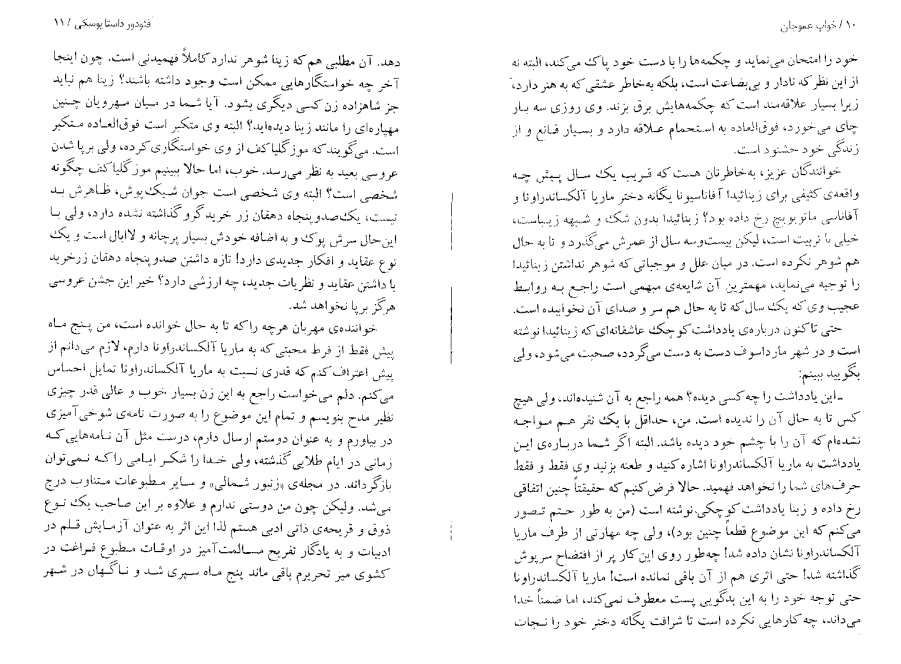 ۱۰ / خواب عموجان
خود را امتحان می‌نماید و چکمه‌ها را با دست خود پاک می‌کند، البته نه
از این نظر که نادار و بی‌بضاعت است، بلکه به‌خاطر عشقی که به هنر دارد،
زیرا بسیار علاقه‌مند است که چکمه‌هایش برق بزند. وی روزی سه بار
چای می‌خورد، فوق‌العاده به استحمام علاقه دارد و بسیار قانع و از
زندگی خود خشنود است.
خوانندگان عزیز، به‌خاطرتان هست که قریب یک سال پیش چه
واقعه‌ی کثیفی برای زینائیدا آفاناسیونا یگانه دختر ماریا آلکساندراونا و
آفاناسی ماتویویچ رخ داده بود؟ زینائیدا بدون شک و شبهه زیباست،
خیلی با تربیت است، لیکن بیست‌وسه سال از عمرش می‌گذرد و تا به حال
هم شوهر نکرده است. در میان علل و موجباتی که شوهر نداشتن زینائیدا
را توجیه می‌نماید، مهمترین آن شایعه‌ی مبهمی است راجع به روابط
عجیب وی که یک سال که تا به حال هم سر و صدای آن نخوابیده است.
حتی تاکنون درباره‌ی یادداشت کوچک عاشقانه‌ای که زینائیدا نوشته
است و در شهر مارداسوف دست به دست می‌گردد، صحبت می‌شود، ولی
بگویید ببینم:
ـ این یادداشت را چه کسی دیده؟ همه راجع به آن شنیده‌اند، ولی هیچ
کس تا به حال آن را ندیده است. من، حداقل با یک نفر هم مواجه
نشده‌ام که آن را با چشم خود دیده باشد. البته اگر شما درباره‌ی این
یادداشت به ماریا آلکساندراونا اشاره کنید و طعنه بزنید وی فقط و فقط
حرف‌های شما را نخواهد فهمید. حالا فرض کنیم که حقیقتاً چنین اتفاقی
رخ داده و زینا یادداشت کوچکی نوشته است (من به طور حتم تصور
می‌کنم که این موضوع قطعاً چنین بود)، ولی چه مهارتی از طرف ماریا
آلکساندراونا نشان داده شد! چه‌طور روی این کار پر از افتضاح سرپوش
گذاشته شد! حتی اثری هم از آن باقی نمانده است! ماریا آلکساندراونا
حتی توجه خود را به این بدگویی پست معطوف نمی‌کند، اما ضمناً خدا
می‌داند، چه کارهایی نکرده است تا شرافت یگانه دختر خود را نجات
فئودور داستایوسکی / ۱۱
دهد. آن مطلبی هم که زینا شوهر ندارد کاملاً فهمیدنی است. چون اینجا
آخر چه خواستگارهایی ممکن است وجود داشته باشند؟ زینا هم نباید
جز شاهزاده زن کسی دیگری بشود. آیا شما در میان مهرویان چنین
مهپاره‌ای را مانند زینا دیده‌اید؟ البته وی متکبر است فوق‌العاده متکبر
است. می‌گویند که موزگلیاکف از وی خواستگاری کرده، ولی برپا شدن
عروسی بعید به نظر می‌رسد. خوب، اما حالا ببینیم موزگلیاکف چگونه
شخصی است؟ البته وی شخصی است جوان شیک‌پوش، ظاهرش بد
نیست، یک‌صدوپنجاه دهقان زر خرید گرو گذاشته نشده دارد، ولی با
این حال سرش پوک و به اضافه خودش بسیار پرچانه و لاابال است و یک
نوع عقاید و افکار جدیدی دارد! تازه داشتن صدوپنجاه دهقان زرخرید
با داشتن عقاید و نظریات جدید، چه ارزشی دارد؟ خیر این جشن عروسی
هرگز برپا نخواهد شد.
خواننده‌ی مهربان هرچه را که تا به حال خوانده است، من پنج ماه
پیش فقط از فرط محبتی که به ماریا آلکساندراونا دارم، لازم می‌دانم از
پیش اعتراف کنم که قدری نسبت به ماریا آلکساندراونا تمایل احساس
می‌کنم. دلم می‌خواست راجع به این زن بسیار خوب و عالی قدر چیزی
نظیر مدح بنویسم و تمام این موضوع را به صورت نامه‌ی شوخی‌آمیزی
در بیاورم و به عنوان دوستم ارسال دارم، درست مثل آن نامه‌هایی که
زمانی در ایام طلایی گذشته، ولی خدا را شکر ایامی را که نمی‌توان
بازگرداند. در مجله‌ی «زنبور شمالی» و سایر مطبوعات متناوب درج
می‌شد. ولیکن چون من دوستی ندارم و علاوه بر این صاحب یک نوع
ذوق و قریحه‌ی ذاتی ادبی هستم لذا این اثر به عنوان آزمایش قلم در
ادبیات و به یادگار تفریح مسالمت‌آمیز در اوقات مطبوع فراغت در
کشوی میز تحریرم باقی ماند پنج ماه سپری شد و ناگهان در شهر